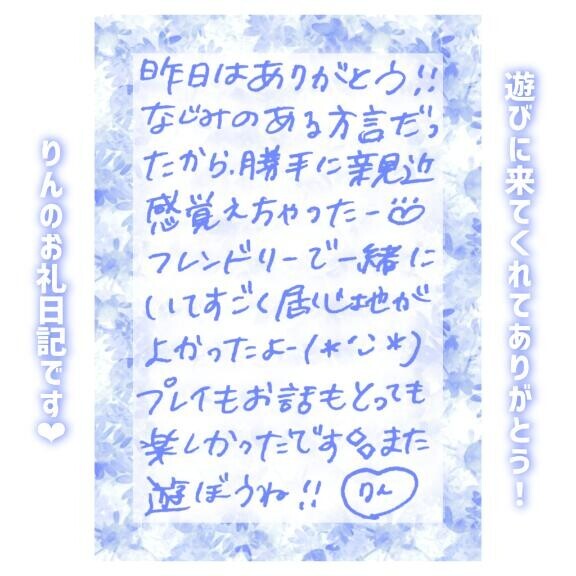 遊びに来てくれてありがとう！
昨日はありがとう!!
なじみのある方言だっ
たから、勝手に親近
感覚えちゃったー
フレンドリーで一緒に
いてすごく居心地が
よかったよー(*'ω'*)
プレイもお話もとっても
楽しかったです また
遊ぼうね!! りん
りんのお礼日記です❤